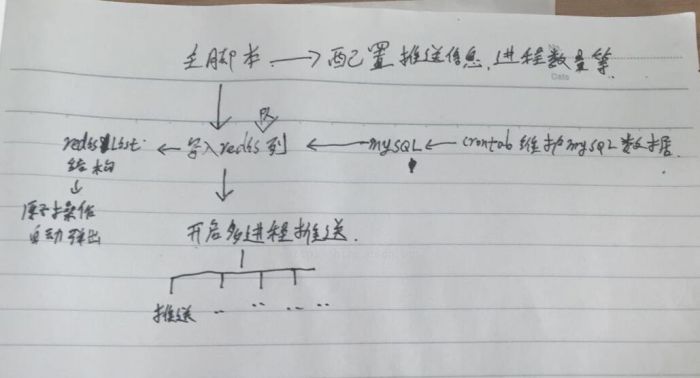 主脚本 → 配置推送信息,进程数量等
Date
redis list ← 写入redis队列 ← mySQL ← crontab 维护mySQL数据
结构
原子操作
自动弹出
开启多进程推送
推送 ‥ ‥ ‥